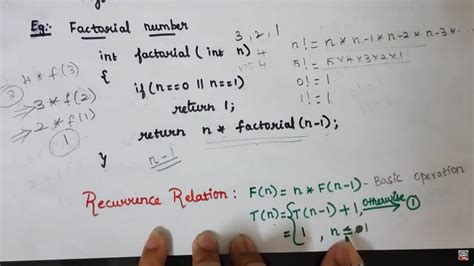 Eg:- Factorial number
int factorial (int n)
3, 2, 1
4
n=4
{
if (n==0 || n==1)
return 1;
return n * factorial (n-1);
}
n-1
4 * f(3)
3
=> 3 * f(2)
=> 2 * f(1)
1
n! = n * n-1 * n-2 * n-3 * ...
5! = 5 * 4 * 3 * 2 * 1
0! = 1
1! = 1
Recurrence Relation : F(n) = n * F(n-1) - Basic operation
T(n) = { T(n-1) + 1, otherwise → ①
= { 1 , n ≤ 1